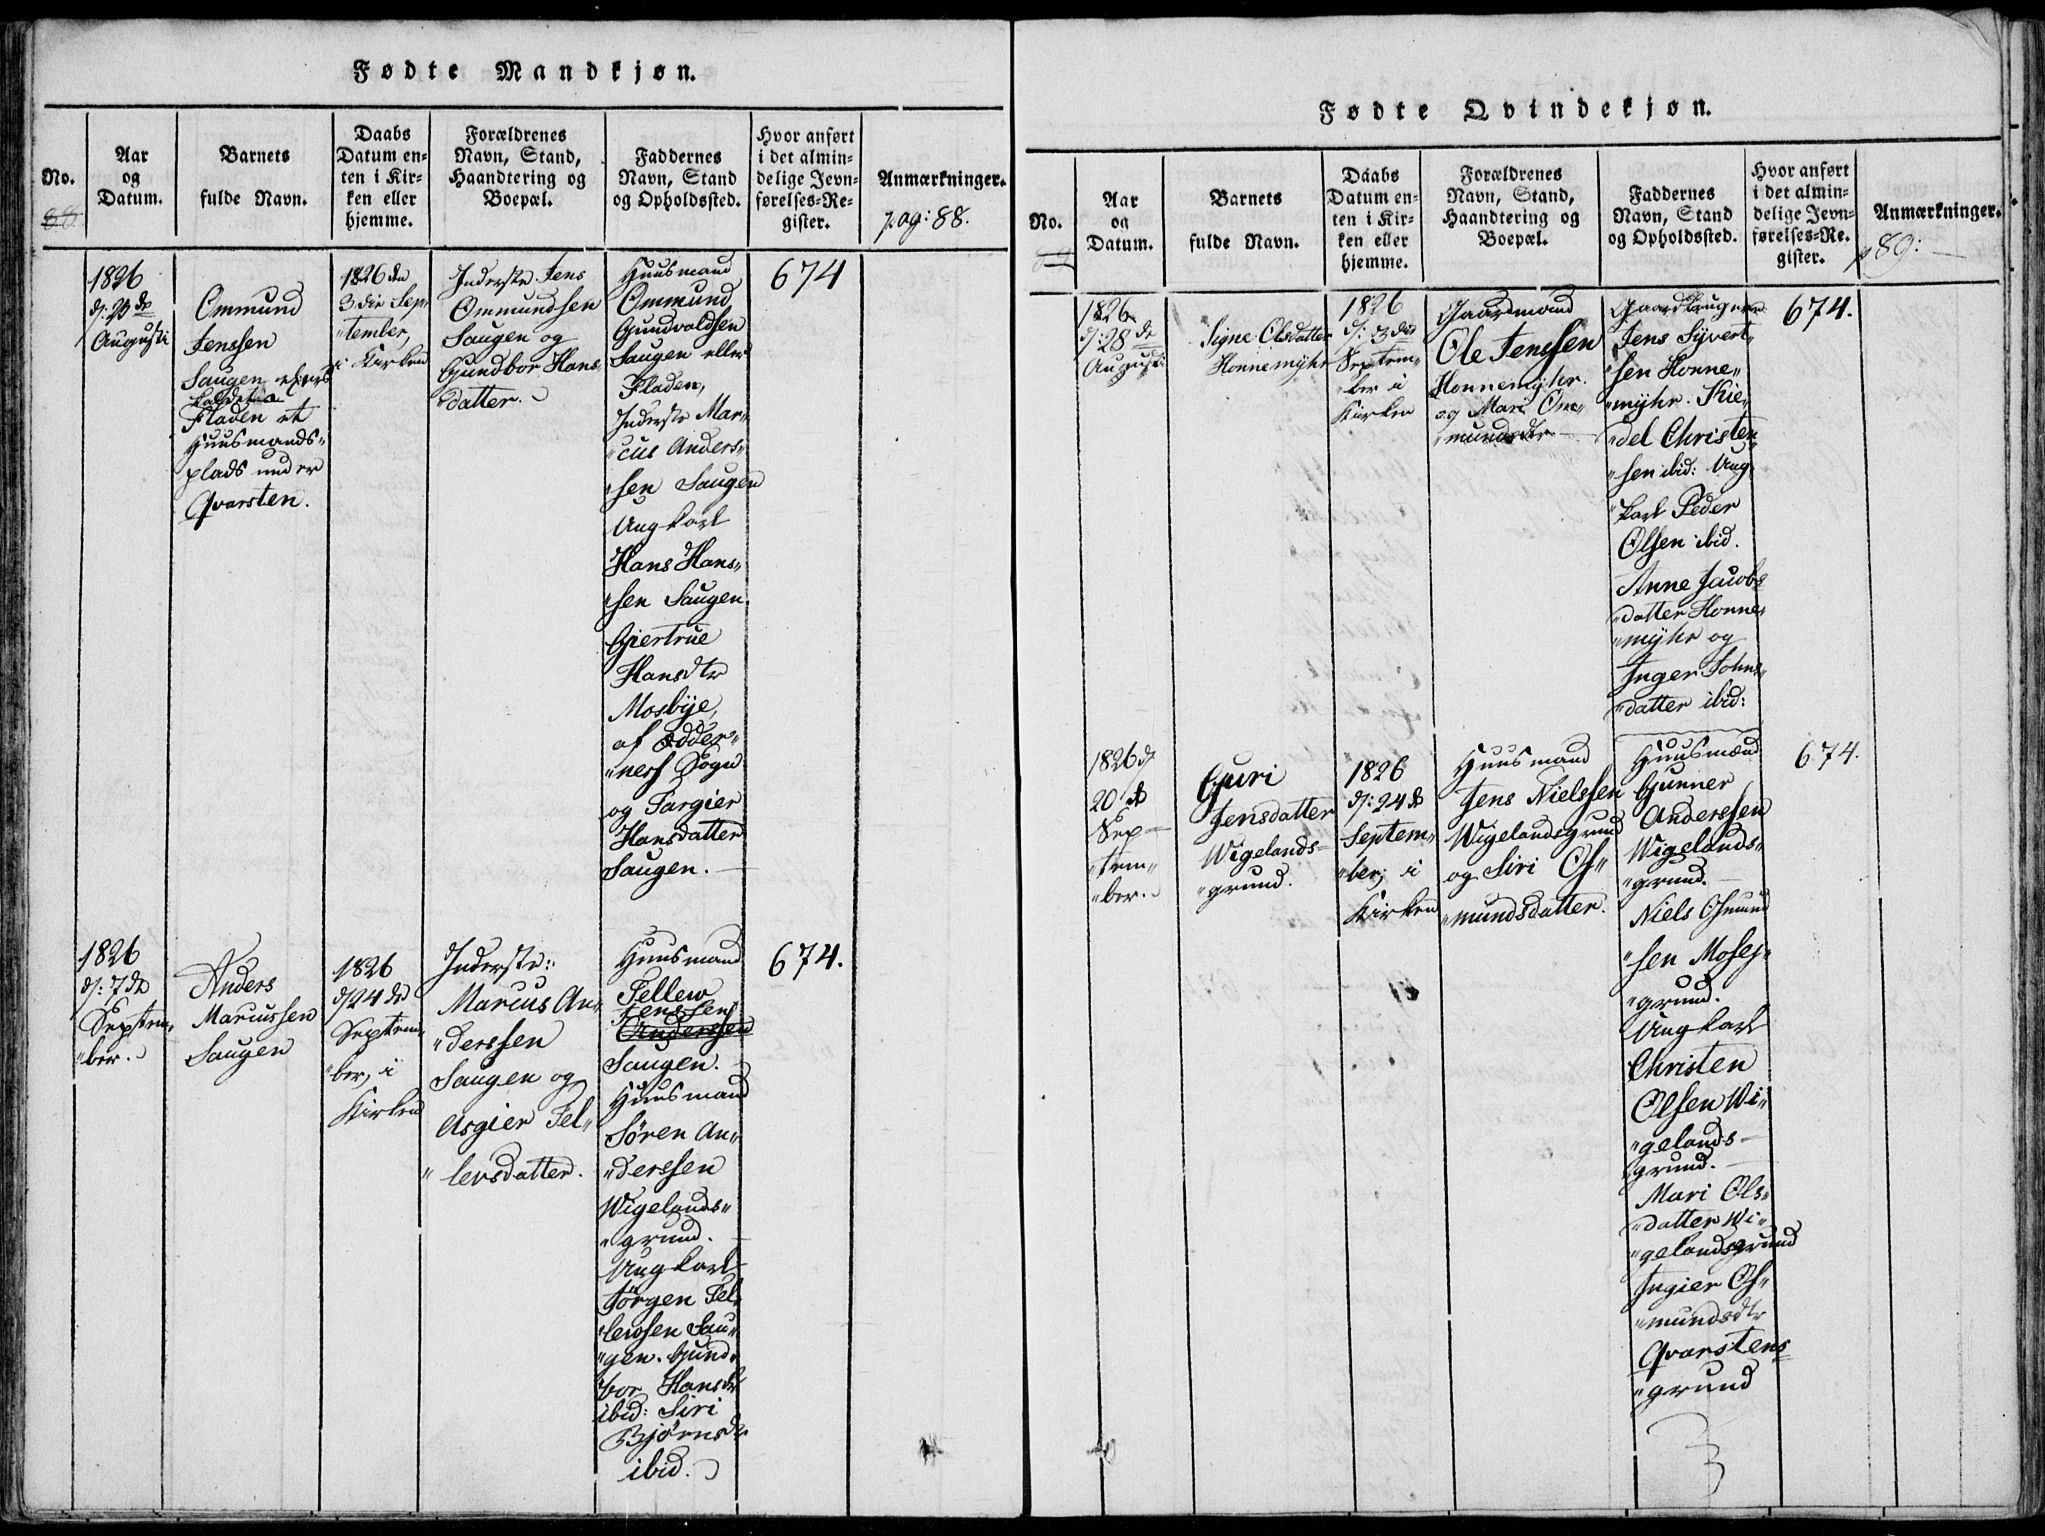 Fødte Mandkjøn.
No.
88
Aar
og
Datum.
Barnets
fulde Navn.
Daabs
Datum en-
ten i Kir-
ken eller
hjemme.
Forældrenes
Navn, Stand,
Haandtering og
Boepæl.
Faddernes
Navn, Stand
og Opholdssted.
Hvor anført
i det almin-
delige Jevn-
førelses-Re-
gister.
Anmærkninger.
pag: 88.
1826
Augusti
Ommund
Jenssen
Saugen
Fladen et
Huusmands„
plads under
Qvarsten.
1826 den
3die Sep„
„tember,
i Kirken
Inderste Jens
Ommundsen
Saugen og
Gundbor Hans„
datter.
Huusmand
Ommund
Gundvaldsen
Saugen eller
Fladen,
Inderste Mar„
„cus Anders„
„sen Saugen
Ungkarl
Hans Hans„
„sen Saugen.
Giertrue
Hansdtr
Mosbÿe,
af Odder„
„ness Sogn
og Targier
Hansdatter
Saugen.
674
1826
d: 7de
Septem„
„ber.
Anders
Marcussen
Saugen
1826
d 24de
Septem„
„ber, i
Kirken
Inderste:
Marcus An„
„derssen
Saugen og
Asgier Tel„
„levsdatter.
Huusmand
Tellew
Jenssen
Anderssen
Saugen.
Huusmand
Sören An„
„derssen
Wigelands„
„grund.
Ungkarl
Jörgen Tel„
„lewsen Sau„
„gen. Gund„
bor Hansdtr
ibid: Siri
Bjørnsdtr
ibid.
674.
Fødte Qvindekjøn.
No.
89
Aar
og
Datum.
Barnets
fulde Navn.
Daabs
Datum en-
ten i Kir-
ken eller
hjemme.
Forældrenes
Navn, Stand,
Haandtering og
Boepæl.
Faddernes
Navn, Stand
og Opholdssted.
Hvor anført
i det almin-
delige Jevn-
førelses-Re-
gister.
Anmærkninger.
p 89:
1826
d: 28de
Augusti
Signe Olsdatter
Honnemÿhr
1826
d: 3die
Septem„
„ber i
Kirken
Gaardmand
Ole Jenssen
Honnemÿhr.
og Mari Om„
„mundsdtr
Gaardbrugere
Jens Sÿvert„
„sen Honne„
„mÿhr. Kie„
„del Christen„
„sen ibid: Ung„
„karl Peder
Olsen ibid.
Anne Jacobs„
„datter Honne„
„mÿhr og
Inger Johns„
„datter ibid:
674.
1826 d
20de
Sep„
„tem„
„ber.
Guri
Jensdatter
Wigelands„
„grund.
1826
d: 24de
Septem„
„ber, i
Kirken
Huusmand
Jens Nielssen
Wigelandsgrund
og Siri Os„
„mundsdatter.
Huusmænd
Gunner
Anderssen
Wigelands„
„grund.
Niels Osmund
„sen Mosej„
„grund.
Ungkarl
Christen
Olsen Wi„
„gelands
grund.
Mari Ols„
„datter Wi„
„gelandsgrund
Ingier Os„
„mundsdtr
Qvarstens
„grund
674.